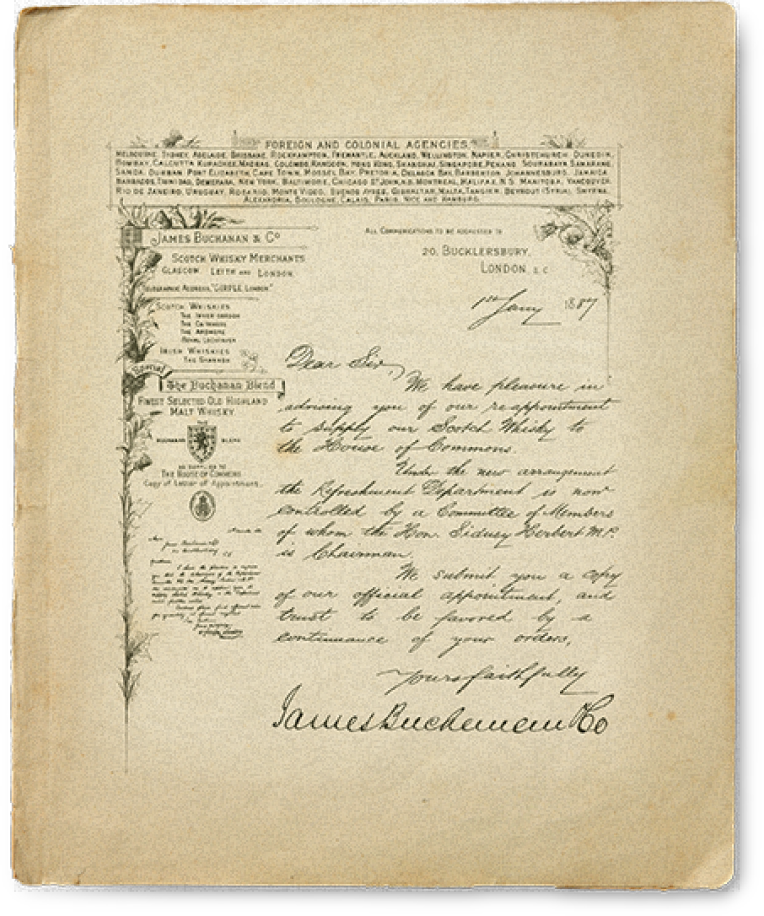 FOREIGN AND COLONIAL AGENCIES
MELBOURNE, SYDNEY, ADELAIDE, BRISBANE, ROCKHAMPTON, FREMANTLE, AUCKLAND, WELLINGTON, NAPIER, CHRISTCHURCH, DUNEDIN,
BOMBAY, CALCUTTA, KURACHEE, MADRAS, COLOMBO, RANGOON, HONG KONG, SHANGHAI, SINGAPORE, PENANG, SOURABAYA, SAMARANG,
DURBAN, PORT ELIZABETH, CAPE TOWN, MOSSEL BAY, PRETORIA, DELAGOA BAY, BARBERTON, JOHANNESBURG, JAMAICA
BARBADOS, TRINIDAD, DEMERARA, NEW YORK, BALTIMORE, CHICAGO, ST JOHN, N.B. MONTREAL, HALIFAX, N.S. MANITOBA, VANCOUVER
RIO DE JANEIRO, URUGUAY, ROSARIO, MONTE VIDEO, BUENOS AYRES, GIBRALTAR, MALTA, TANGIER, BEYROUT (SYRIA), SMYRNA,
ALEXANDRIA, BOULOGNE, CALAIS, PARIS, NICE AND HAMBURG
JAMES BUCHANAN & Co
SCOTCH WHISKY MERCHANTS
GLASGOW, LEITH AND LONDON.
TELEGRAPHIC ADDRESS, LONDON."
SCOTCH WHISKIES
THE
THE
THE ARDMORE
ROYAL LOCHNAGAR
IRISH WHISKIES
THE SHANNON
Special
The Buchanan Blend
FINEST SELECTED OLD HIGHLAND
MALT WHISKY.
THE
BUCHANAN BLEND
AS SUPPLIED TO
THE HOUSE OF COMMONS
Copy of Letter of Appointment.
ALL COMMUNICATIONS TO BE ADDRESSED TO
20, BUCKLERSBURY,
LONDON, E.C.
1st Jany 1887
Dear Sir,
We have pleasure in
advising you of our re appointment
to supply our Scotch Whisky to
the House of Commons.
Under the new arrangement
the Refreshment Department is now
controlled by a Committee of Members
of whom the Hon. Sidney Herbert M.P.
is Chairman.
We submit you a copy
of our official appointment, and
trust to be favored by a
continuance of your orders,
Yours faithfully
James Buchanan & Co